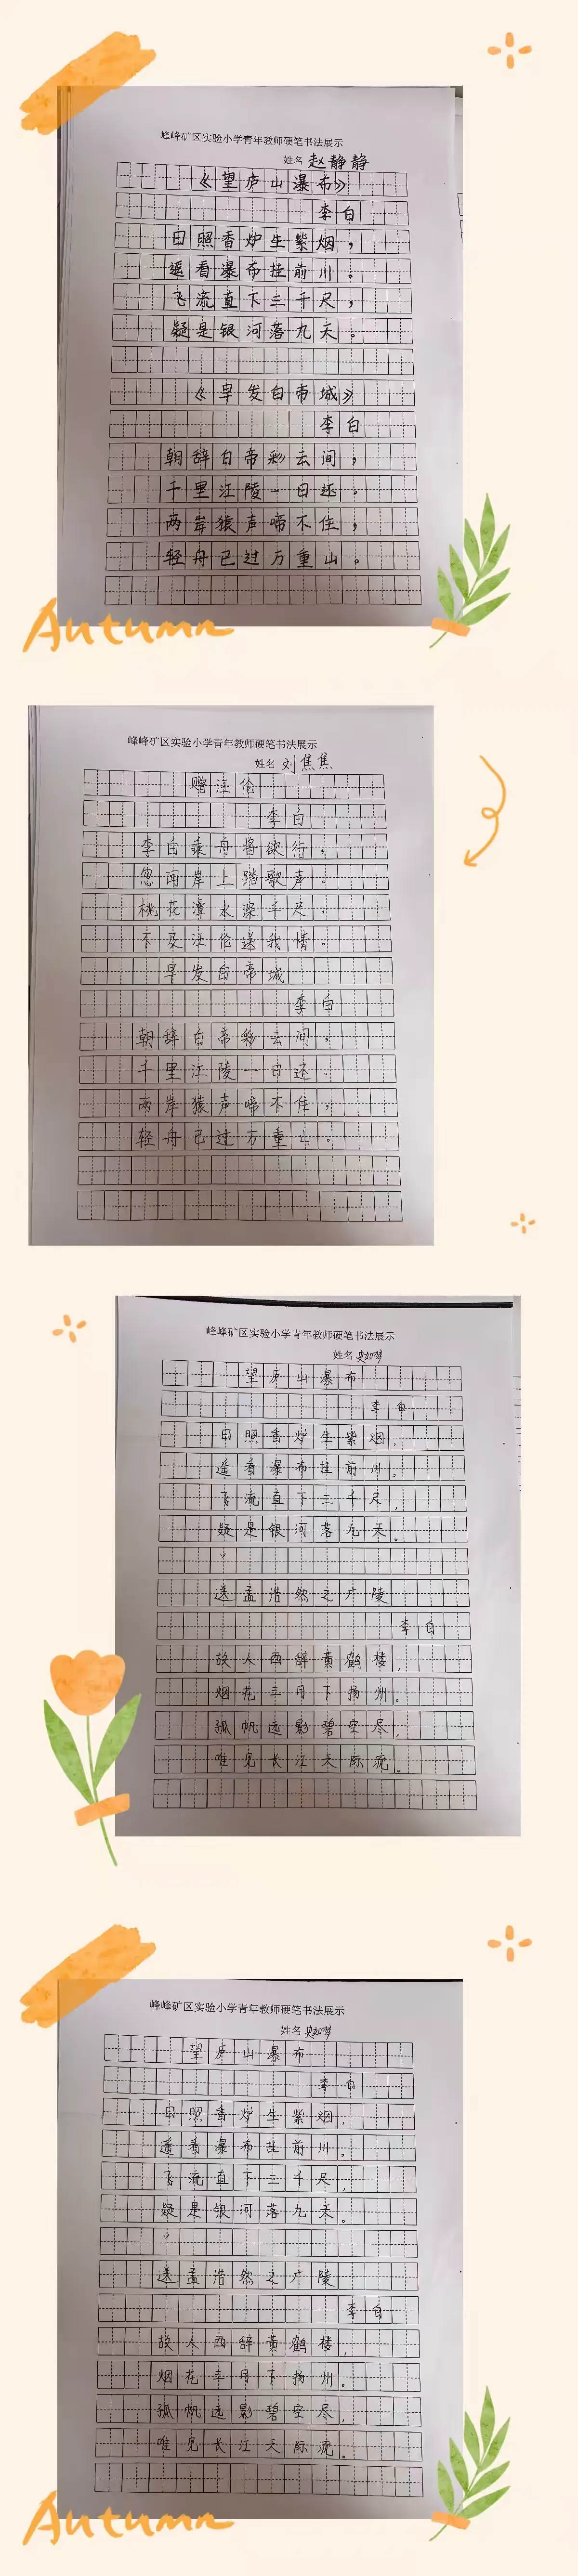 峰峰矿区实验小学青年教师硬笔书法展示
姓名 赵静静
《望庐山瀑布》
李白
日照香炉生紫烟，
遥看瀑布挂前川。
飞流直下三千尺，
疑是银河落九天。
《早发白帝城》
李白
朝辞白帝彩云间，
千里江陵一日还。
两岸猿声啼不住，
轻舟已过万重山。
Autumn
峰峰矿区实验小学青年教师硬笔书法展示
姓名 刘焦焦
赠汪伦
李白
李白乘舟将欲行，
忽闻岸上踏歌声。
桃花潭水深千尺，
不及汪伦送我情。
早发白帝城
李白
朝辞白帝彩云间，
千里江陵一日还。
两岸猿声啼不住，
轻舟已过万重山。
峰峰矿区实验小学青年教师硬笔书法展示
姓名 史如梦
望庐山瀑布
李白
日照香炉生紫烟，
遥看瀑布挂前川。
飞流直下三千尺，
疑是银河落九天。
送孟浩然之广陵
李白
故人西辞黄鹤楼，
烟花三月下扬州。
孤帆远影碧空尽，
唯见长江天际流。
峰峰矿区实验小学青年教师硬笔书法展示
姓名 史如梦
望庐山瀑布
李白
日照香炉生紫烟，
遥看瀑布挂前川。
飞流直下三千尺，
疑是银河落九天。
送孟浩然之广陵
李白
故人西辞黄鹤楼，
烟花三月下扬州。
孤帆远影碧空尽，
唯见长江天际流。
Autumn